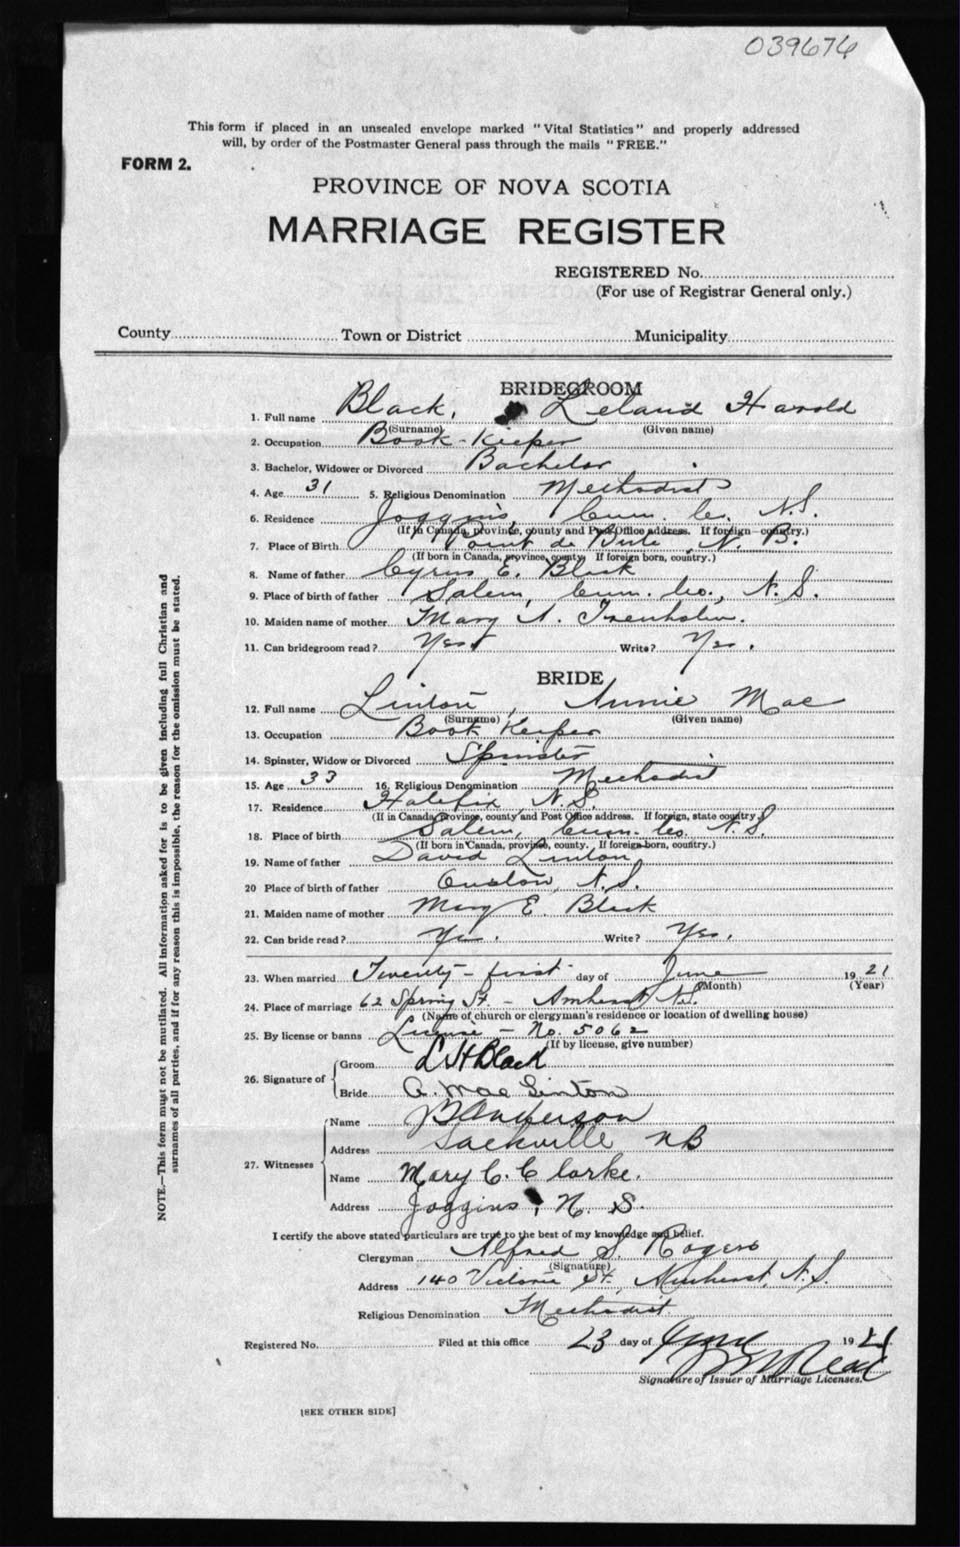 039676
This form if placed in an unsealed envelope marked "Vital Statistics" and properly addressed
will, by order of the Postmaster General pass through the mails "FREE."
FORM 2.
PROVINCE OF NOVA SCOTIA
MARRIAGE REGISTER
REGISTERED No.
(For use of Registrar General only.)
County Town or District Municipality
BRIDEGROOM
1. Full name Black, Leland Harold
(Surname) (Given name)
2. Occupation Book-Keeper
3. Bachelor, Widower or Divorced Bachelor
4. Age 31 5. Religious Denomination Methodist
6. Residence Joggins, Cum. Co. N.S.
(If in Canada, province, county and Post Office address. If foreign—country.)
7. Place of Birth Point de Bute, N. B.
(If born in Canada, province, county. If foreign born, country.)
8. Name of father Cyrus E. Black
9. Place of birth of father Salem, Cum. Co., N.S.
10. Maiden name of mother Mary A. Trenholm.
11. Can bridegroom read? Yes. Write? Yes.
BRIDE
12. Full name Linton, Annie Mae
(Surname) (Given name)
13. Occupation Book Keeper
14. Spinster, Widow or Divorced Spinster
15. Age 33 16. Religious Denomination Methodist
17. Residence Halifax, N.S.
(If in Canada, Province, county and Post Office address. If foreign, state country.)
18. Place of birth Salem, Cum. Co. N.S.
(If born in Canada, province, county. If foreign born, country.)
19. Name of father David Linton
20 Place of birth of father Onslow, N.S.
21. Maiden name of mother Mary E. Black
22. Can bride read? Yes. Write? Yes.
23. When married Twenty-first day of June 1921
(Month) (Year)
24. Place of marriage 62 Spring St. - Amherst N.S.
(Name of church or clergyman's residence or location of dwelling house)
25. By license or banns License - No. 5062
(If by license, give number)
26. Signature of Groom L H Black
Bride A. Mae Linton
27. Witnesses Name Anderson
Address Sackville NB
Name Mary C. Clarke.
Address Joggins, N. S.
I certify the above stated particulars are true to the best of my knowledge and belief.
Clergyman Alfred S. Rogers
(Signature)
Address 140 Victoria St. Amherst, N.S.
Religious Denomination Methodist.
Registered No. Filed at this office 23 day of June 1921
Signature of Issuer of Marriage Licenses.
[SEE OTHER SIDE]
NOTE.—This form must not be mutilated. All information asked for is to be given including full Christian and
surnames of all parties, and if for any reason this is impossible, the reason for the omission must be stated.